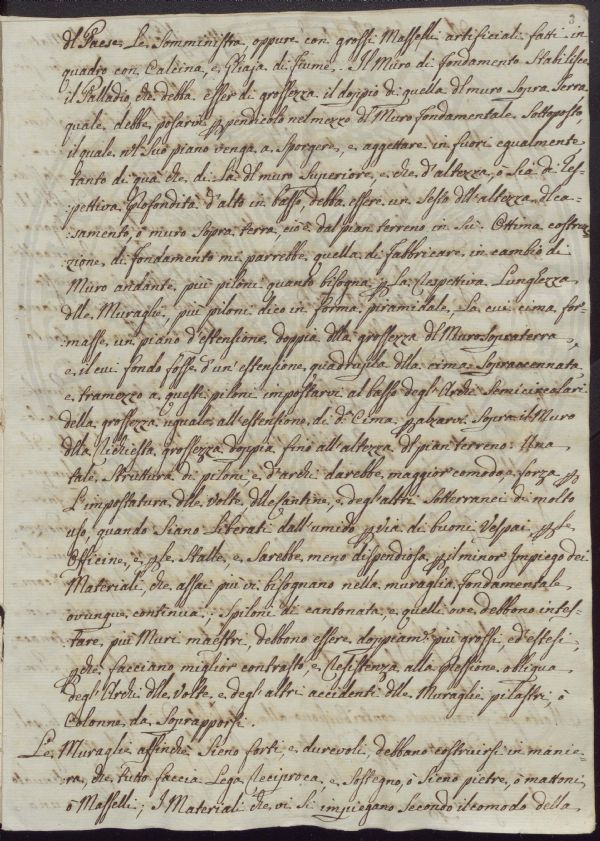 3
dl Paese Le Somministra, oppure con grossi Masselli artificiali fatti in
quadro con Calcina, e Ghiaja di fiume. Il Muro di fondamento Stabilisce
il Palladio, che debba esser di grossezza il doppio di quella dl muro Sopra Terra
quale debbe posarvi ppendicolo nel mezzo dl Muro fondamentale Sottoposto,
il quale nl Suo piano venga a Sporgere, e aggettare in fuori egualmente
tanto di qua che di là dl muro Superiore, e che d'altezza, ò sia di res-
:pettiva profondità d'alto in basso debba essere un Sesto dll'altezza dl ca-
:samento, ò muro Sopra terra, cioè dal pian terreno in Sù. Ottima costru-
zione di fondamento mi parrebbe quella di fabbricare in cambio di
Muro andante, più piloni quanto bisogna p la respettiva Lunghezza
dlle Muraglie, più piloni dico in forma piramidale, La cui cima for-
:masse un piano d'estensione doppia dlla grossezza dl Muro Sopra terra,
e il cui fondo fosse d'un'estensione quadrupla dlla cima Sopraccennata
e tramezzo a questi piloni impostarvi al basso degl'Archi Semicircolari
della grossezza uguale all'estensione di da Cima p alzarvi Sopra il Muro
dlla richiesta grossezza doppia fino all'altezza dl pian terreno. Una
tale Struttura di piloni, e d'archi darebbe maggior comodo, e forza p
L'impostatura dlle Volte dlle Cantine, e degl'altri Sotterranei di molto
uso, quando Siano Liberati dall'umido p via di buoni Vespai, p le
Officine, e p le Stalle, e Sarebbe meno dispendiosa p il minor Impiego dei
Materiali, che assai più vi bisognano nella muraglia fondamentale
ovunque continua; I piloni di cantonata, e quelli ove debbono intes-
:tare più Muri maestri, debbono essere doppiamte più grossi, ed estesi,
pche facciano miglior contrasto, e resistenza alla pressione obliqua
degl'Archi dlle Volte, e degl'altri accidenti dlle Muraglie pilastri, ò
Colonne da Soprapporsi.
Le Muraglie affinché Sieno forti e durevoli, debbano costruirsi in manie-
ra, che tutto faccia Lega reciproca, e Sostegno, ò Sieno pietre, ò mattoni,
ò Masselli; I Materiali che vi Si impiegano Secondo il comodo della